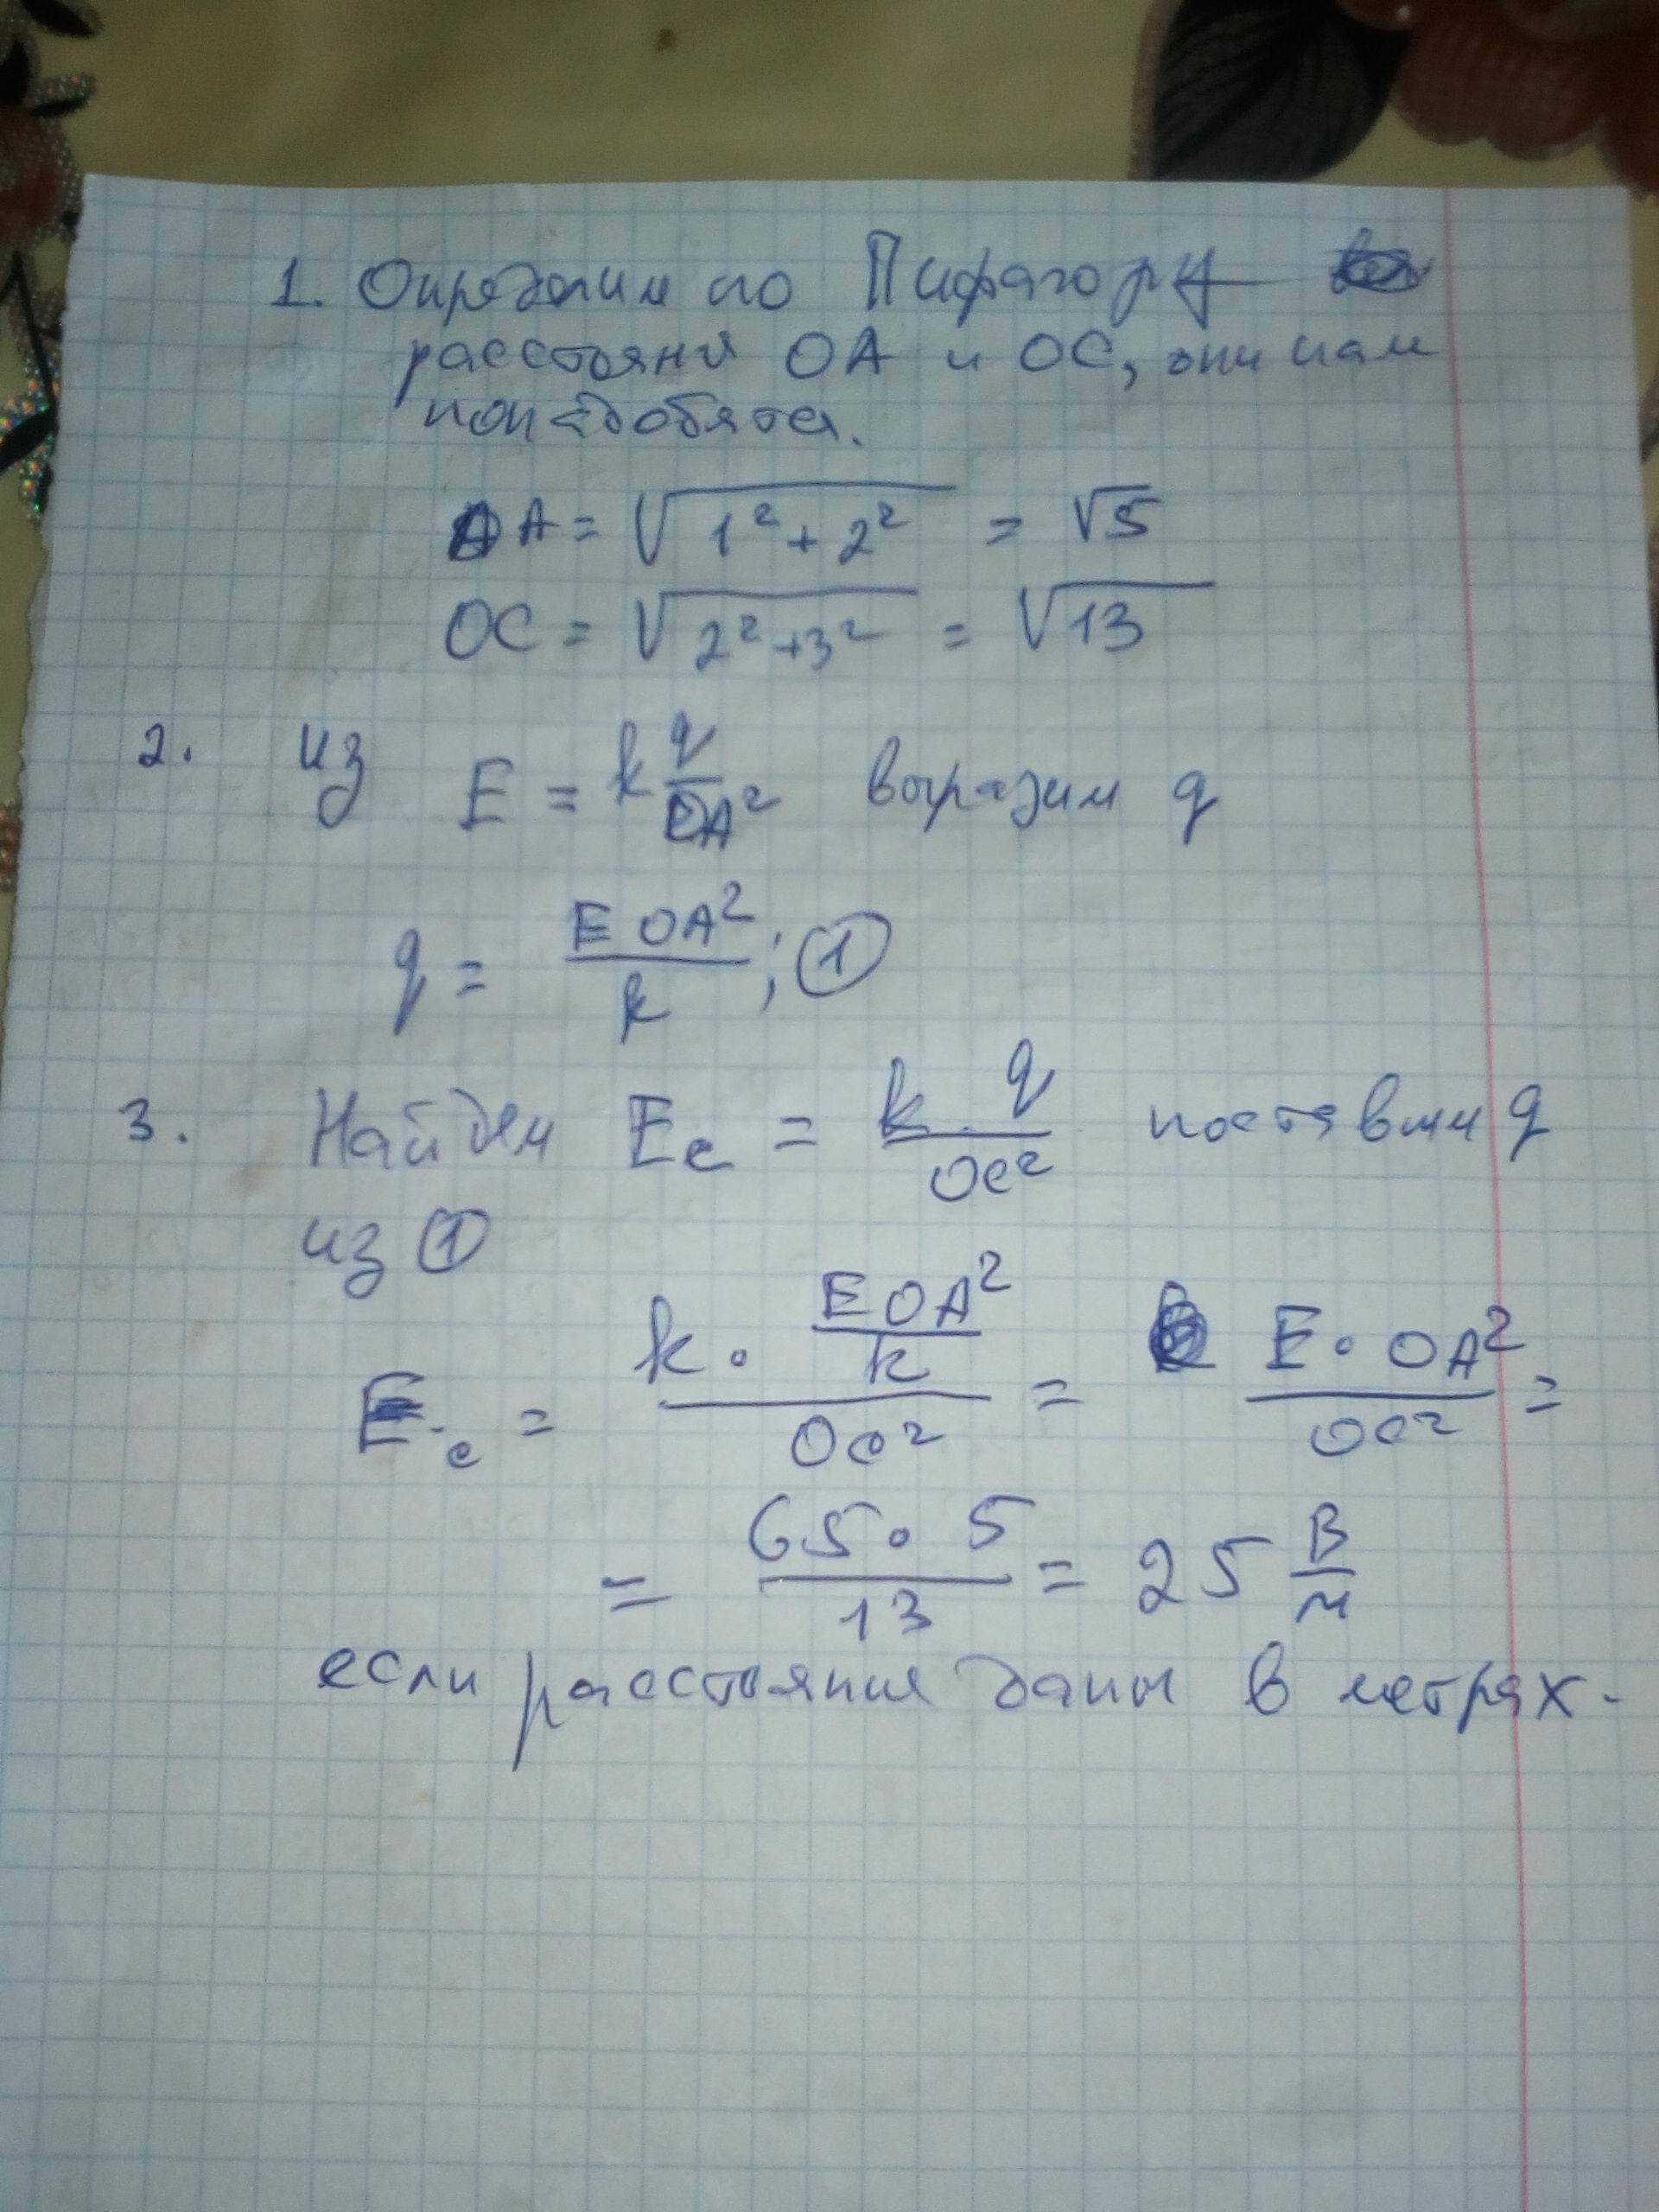 1. Определим по Пифагору
расстояния ОА и ОС, они нам
понадобятся.
ОА = √(1² + 2²) = √5
ОС = √(2² + 3²) = √13
2. Из E = k q/ОА² выразим q
q = E ОА²/k ; ①
3. Найдем Eс = k q/ОС² поставим q
из ①
Eс = (k · E ОА²/k)/ОС² = E · ОА²/ОС² =
= 65 · 5/13 = 25 В/м
если расстояния даны в метрах.